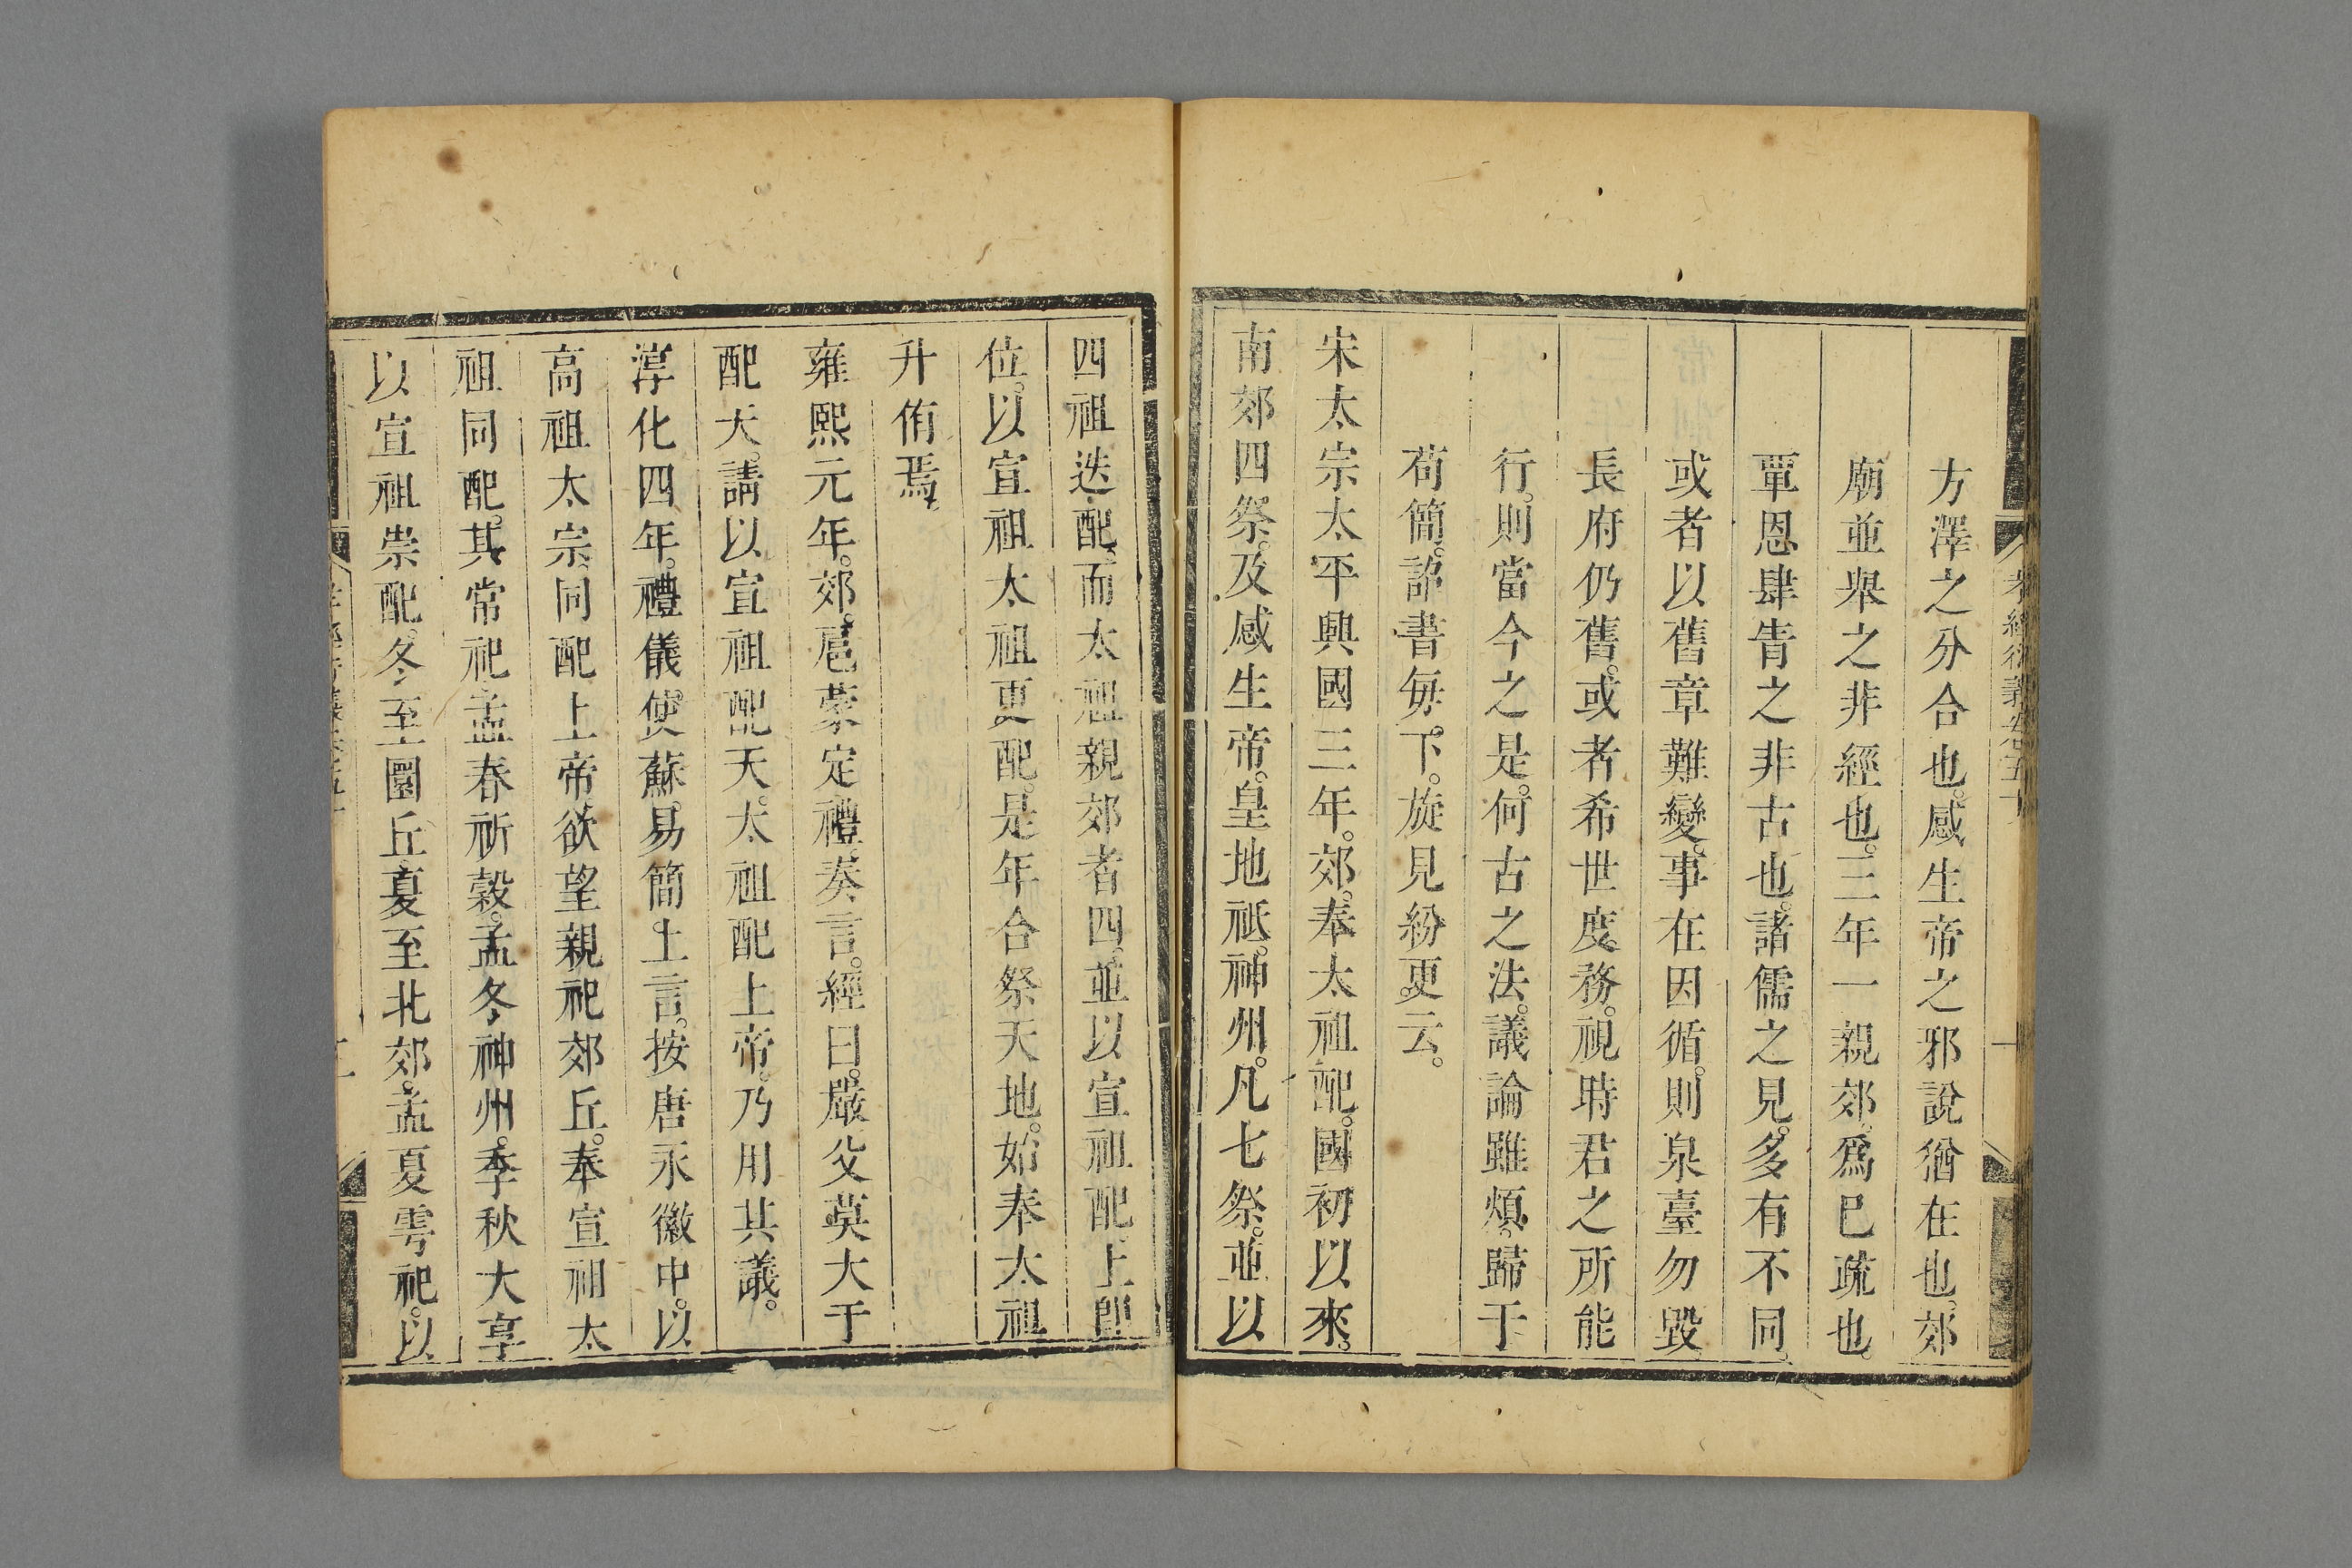 孝經衍義卷五十
方澤之分合也。感生帝之邪說猶在也。郊
廟並舉之非經也。三年一親郊。爲已疏也。
覃恩肆眚之非古也。諸儒之見。多有不同。
或者以舊章難變。事在因循。則泉臺勿毀
長府仍舊。或者希世度務。視時君之所能
行。則當今之是。何古之法。議論雖煩。歸于
苟簡。詔書每。下。旋見紛更。云。
宋太宗太平興國三年。郊。奉太祖配。國初以來。
南郊四祭。及感生帝。皇地祇。神州。凡七祭。並以
四祖迭配。而太祖親郊者四。並以宣祖配。上卽
位。以宣祖太祖更配。是年合祭天地。始奉太祖
升侑焉。
雍熙元年。郊。扈蒙定禮。奏言。經曰。嚴父莫大于
配天。請以宣祖配天。太祖配上帝。乃用其議。
淳化四年。禮儀使蘇易簡。上言。按唐永徽中。以
高祖太宗。同配上帝。欲望親祀郊丘。奉宣祖太
祖同配。其常祀孟春祈穀。孟冬神州。季秋大享
以宣祖崇配。冬至圜丘夏至北郊。孟夏雩祀。以